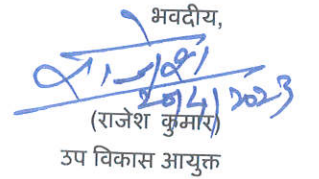 भवदीय,
राजेश
20/4/2023
(राजेश कुमार)
उप विकास आयुक्त